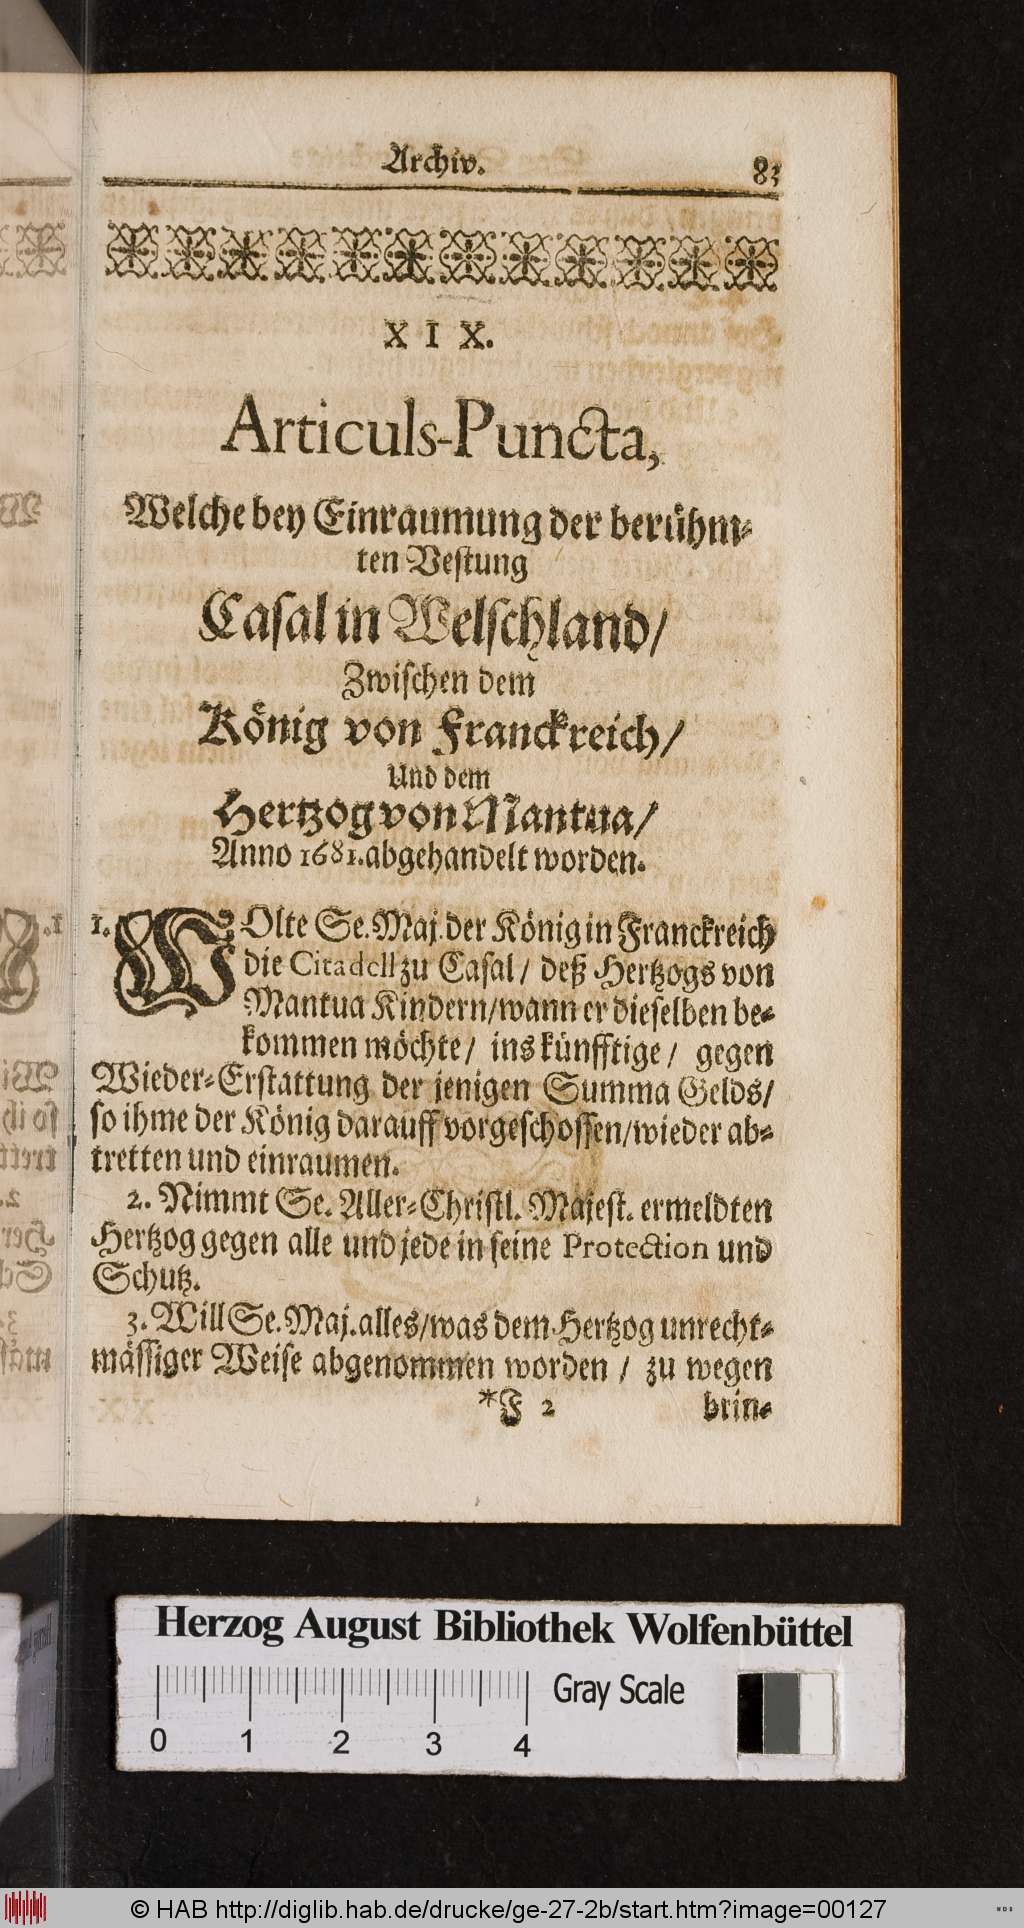 Archiv. 83
X I X.
Articuls-Puncta,
Welche bey Einraumung der berühm-
ten Vestung
Casal in Welschland/
Zwischen dem
König von Franckreich/
Und dem
Hertzog von Mantua/
Anno 1681. abgehandelt worden.
1. WOlte Se. Maj. der König in Franckreich
die Citadell zu Casal/ deß Hertzogs von
Mantua Kindern/wann er dieselben be-
kommen möchte/ ins künfftige/ gegen
Wieder-Erstattung der jenigen Summa Gelds/
so ihme der König darauff vorgeschossen/wieder ab-
tretten und einraumen.
2. Nimmt Se. Aller-Christl. Majest. ermeldten
Hertzog gegen alle und jede in seine Protection und
Schutz.
3. Will Se. Maj. alles/was dem Hertzog unrecht-
mässiger Weise abgenommen worden/ zu wegen
*F 2 brin-
Herzog August Bibliothek Wolfenbüttel
Gray Scale
0 1 2 3 4
© HAB http://diglib.hab.de/drucke/ge-27-2b/start.htm?image=00127